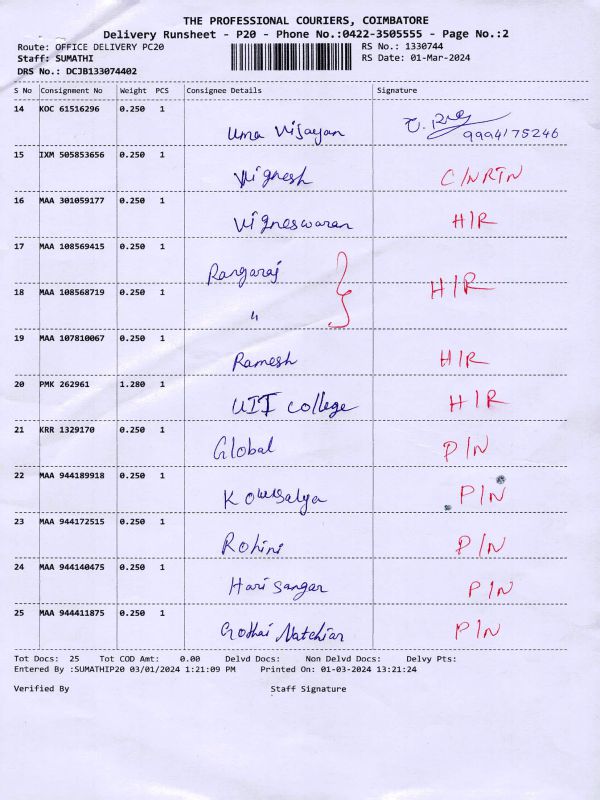 THE PROFESSIONAL COURIERS, COIMBATORE
Delivery Runsheet - P20 - Phone No.:0422-3505555 - Page No.:2
Route: OFFICE DELIVERY PC20 RS No.: 1330744
Staff: SUMATHI RS Date: 01-Mar-2024
DRS No.: DCJB133074402
S No Consignment No Weight PCS Consignee Details Signature
14 KOC 61516296 0.250 1 Uma Vijayan 9994175246
15 IXM 505853656 0.250 1 Vignesh C/NRTN
16 MAA 301059177 0.250 1 Vigneswaran H/R
17 MAA 108569415 0.250 1 Rangaraj H/R
18 MAA 108568719 0.250 1 "
19 MAA 107810067 0.250 1 Ramesh H/R
20 PMK 262961 1.280 1 UIT college H/R
21 KRR 1329170 0.250 1 Global P/N
22 MAA 944189918 0.250 1 Kowsalya P/N
23 MAA 944172515 0.250 1 Rohini P/N
24 MAA 944140475 0.250 1 Hari Sangar P/N
25 MAA 944411875 0.250 1 Gothai Natchiar P/N
Tot Docs: 25 Tot COD Amt: 0.00 Delvd Docs: Non Delvd Docs: Delvy Pts:
Entered By :SUMATHIP20 03/01/2024 1:21:09 PM Printed On: 01-03-2024 13:21:24
Verified By Staff Signature